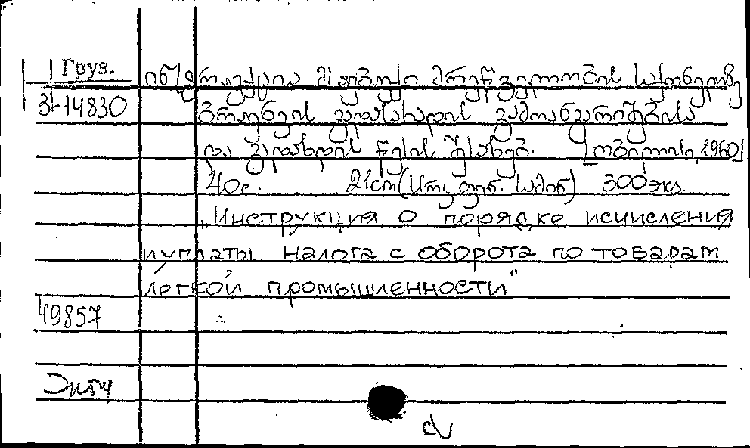 Груз. ინსტრუქცია მსუბუქი მრეწველობის საქონელზე
3-14830 ბრუნვის გადასახადის გამოანგარიშებისა
და გადახდის წესის შესახებ. [თბილისი, 1960]
40გ. 21cm 300 ეგზ.
"Инструкция о порядке исчисления
и уплаты налога с оборота по товарам
легкой промышленности"
49857